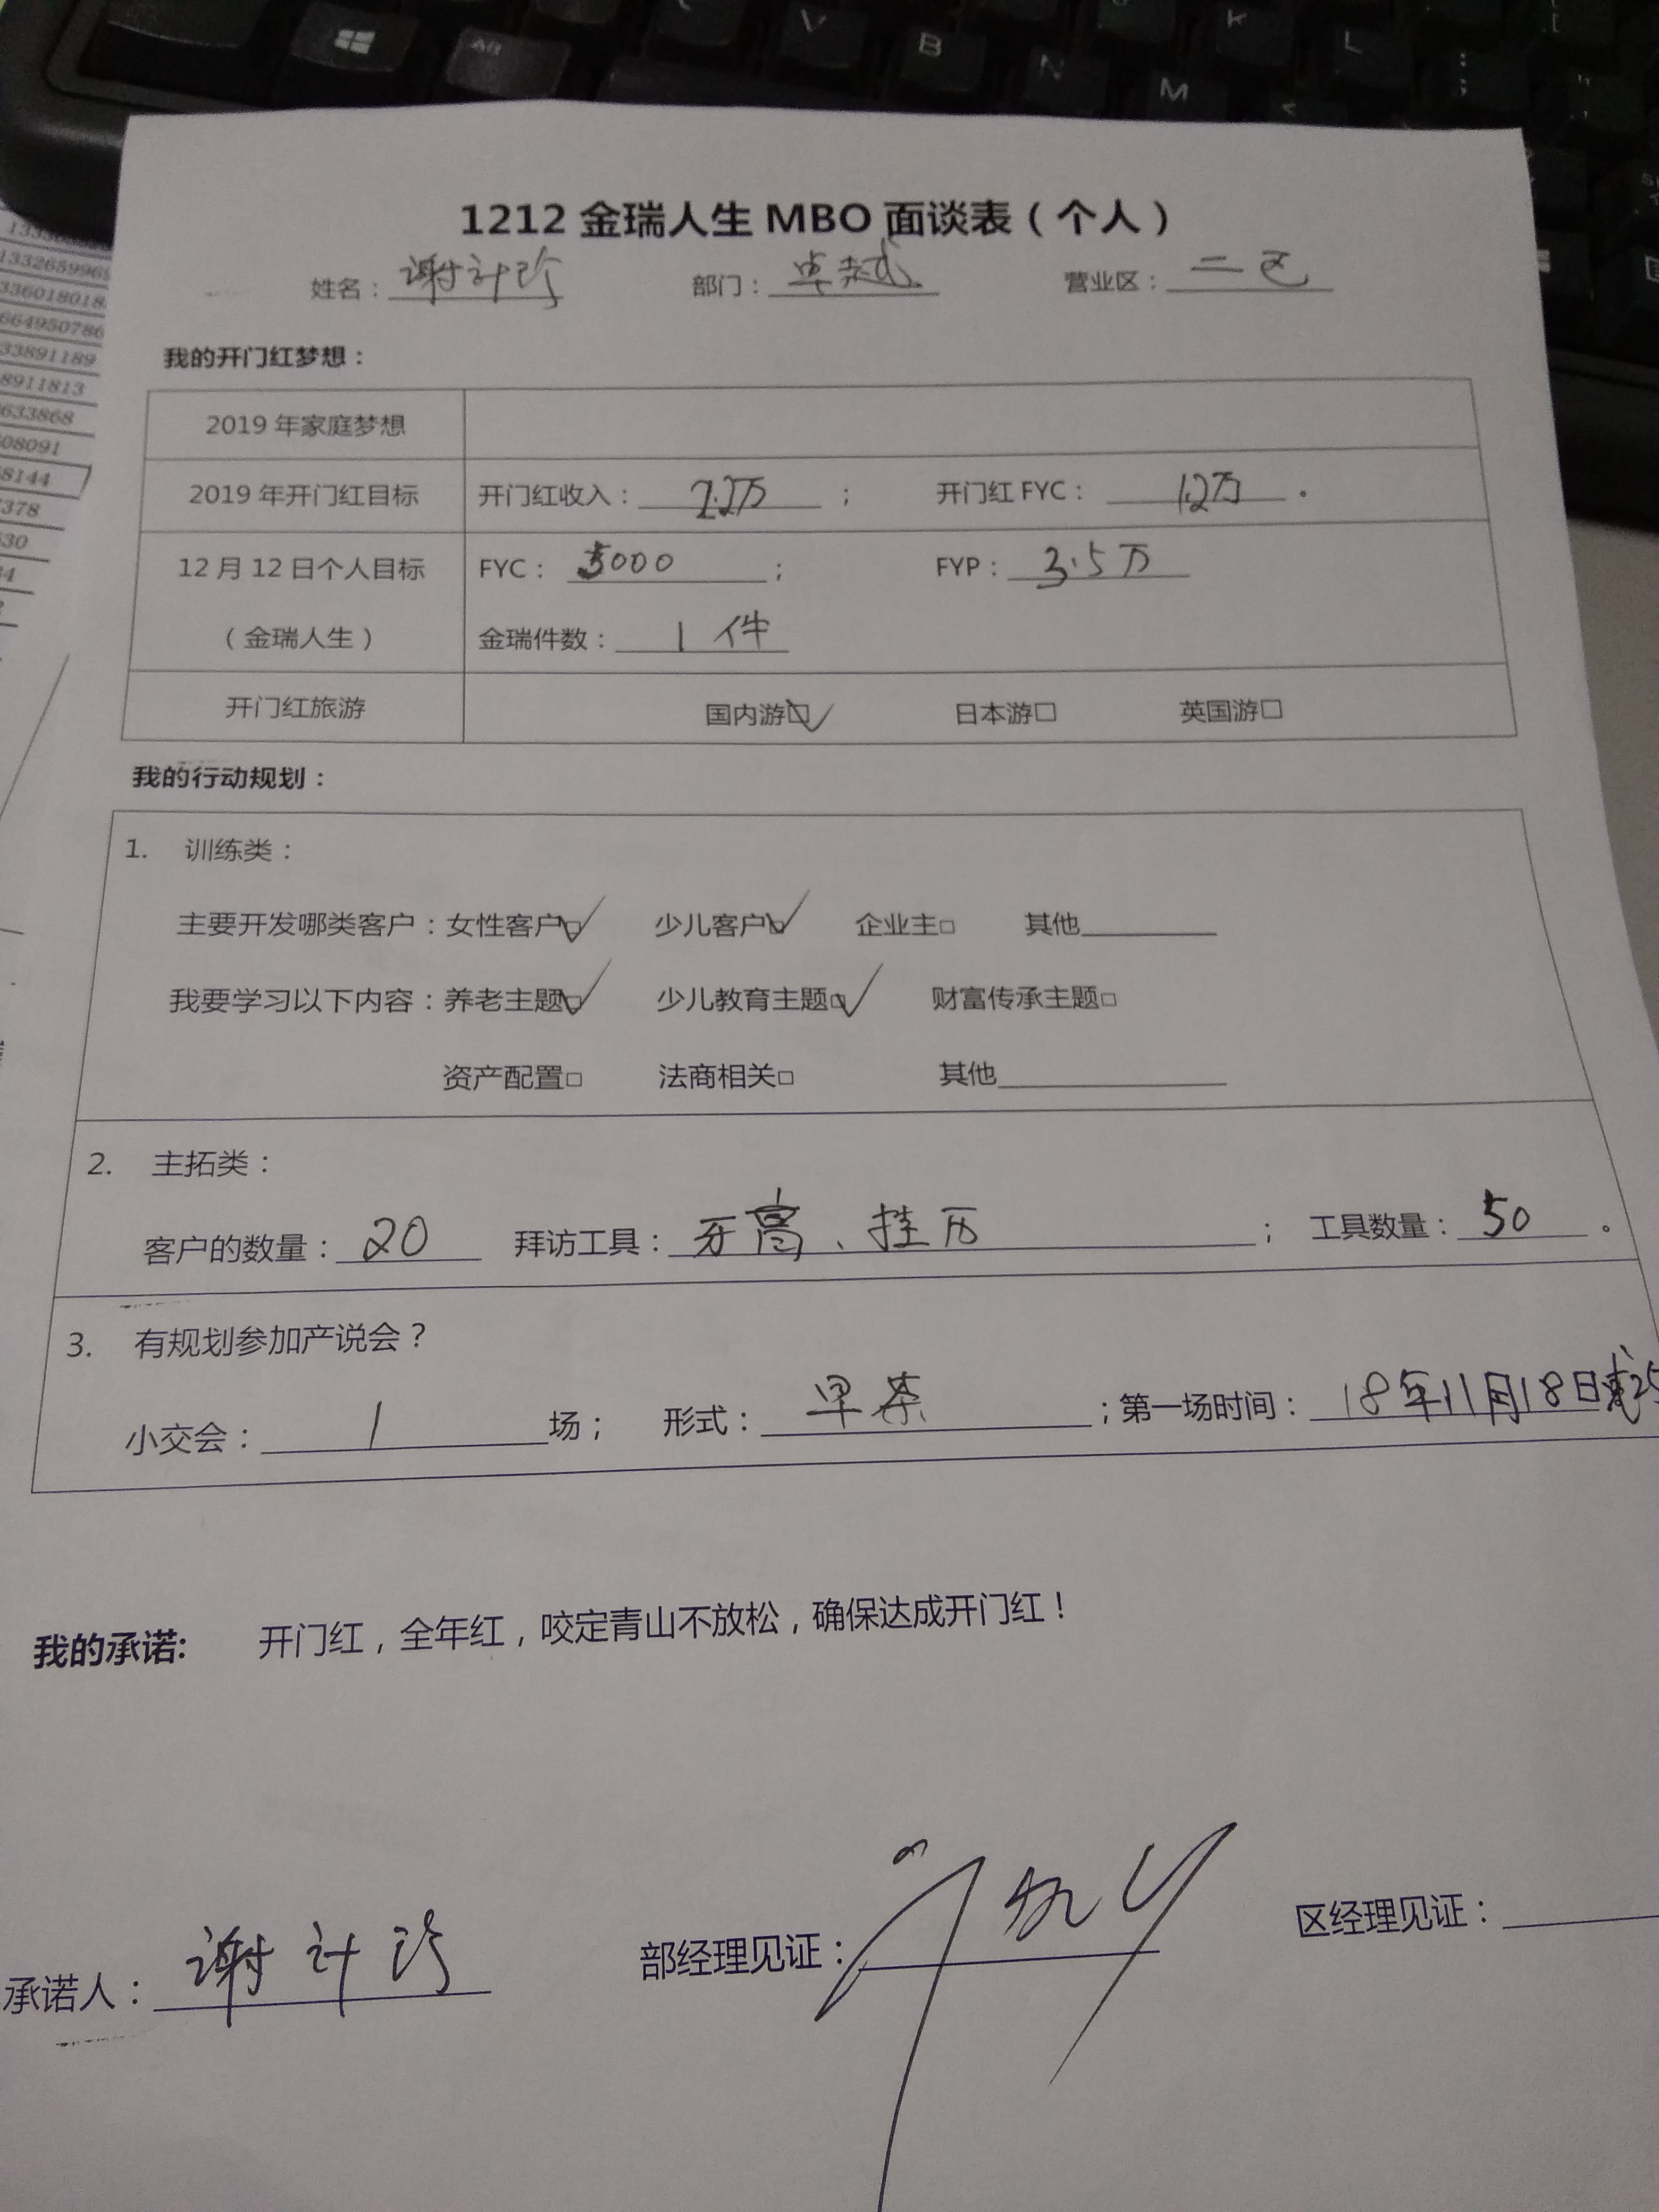 1212 金瑞人生 MBO 面谈表（个人）
姓名：谢计珍 部门：卓越 营业区：二区
我的开门红梦想：
2019 年家庭梦想
2019 年开门红目标 开门红收入：    ； 开门红 FYC：1.2万。
12 月 12 日个人目标 FYC：5000； FYP：3.5万
（金瑞人生） 金瑞件数：1 件
开门红旅游 国内游☑ 日本游□ 英国游□
我的行动规划：
1. 训练类：
主要开发哪类客户：女性客户☑ 少儿客户☑ 企业主□ 其他
我要学习以下内容：养老主题☑ 少儿教育主题☑ 财富传承主题□
资产配置□ 法商相关□ 其他
2. 主拓类：
客户的数量：20 拜访工具：牙膏、挂历； 工具数量：50。
3. 有规划参加产说会？
小交会：1场； 形式：早茶；第一场时间：18年11月18日
我的承诺: 开门红，全年红，咬定青山不放松，确保达成开门红！
承诺人：谢计珍 部经理见证： 区经理见证：
V
B
N
M
K
L
Alt
1332659969
33601801
664950786
33891189
8911813
633868
08091
8144
378